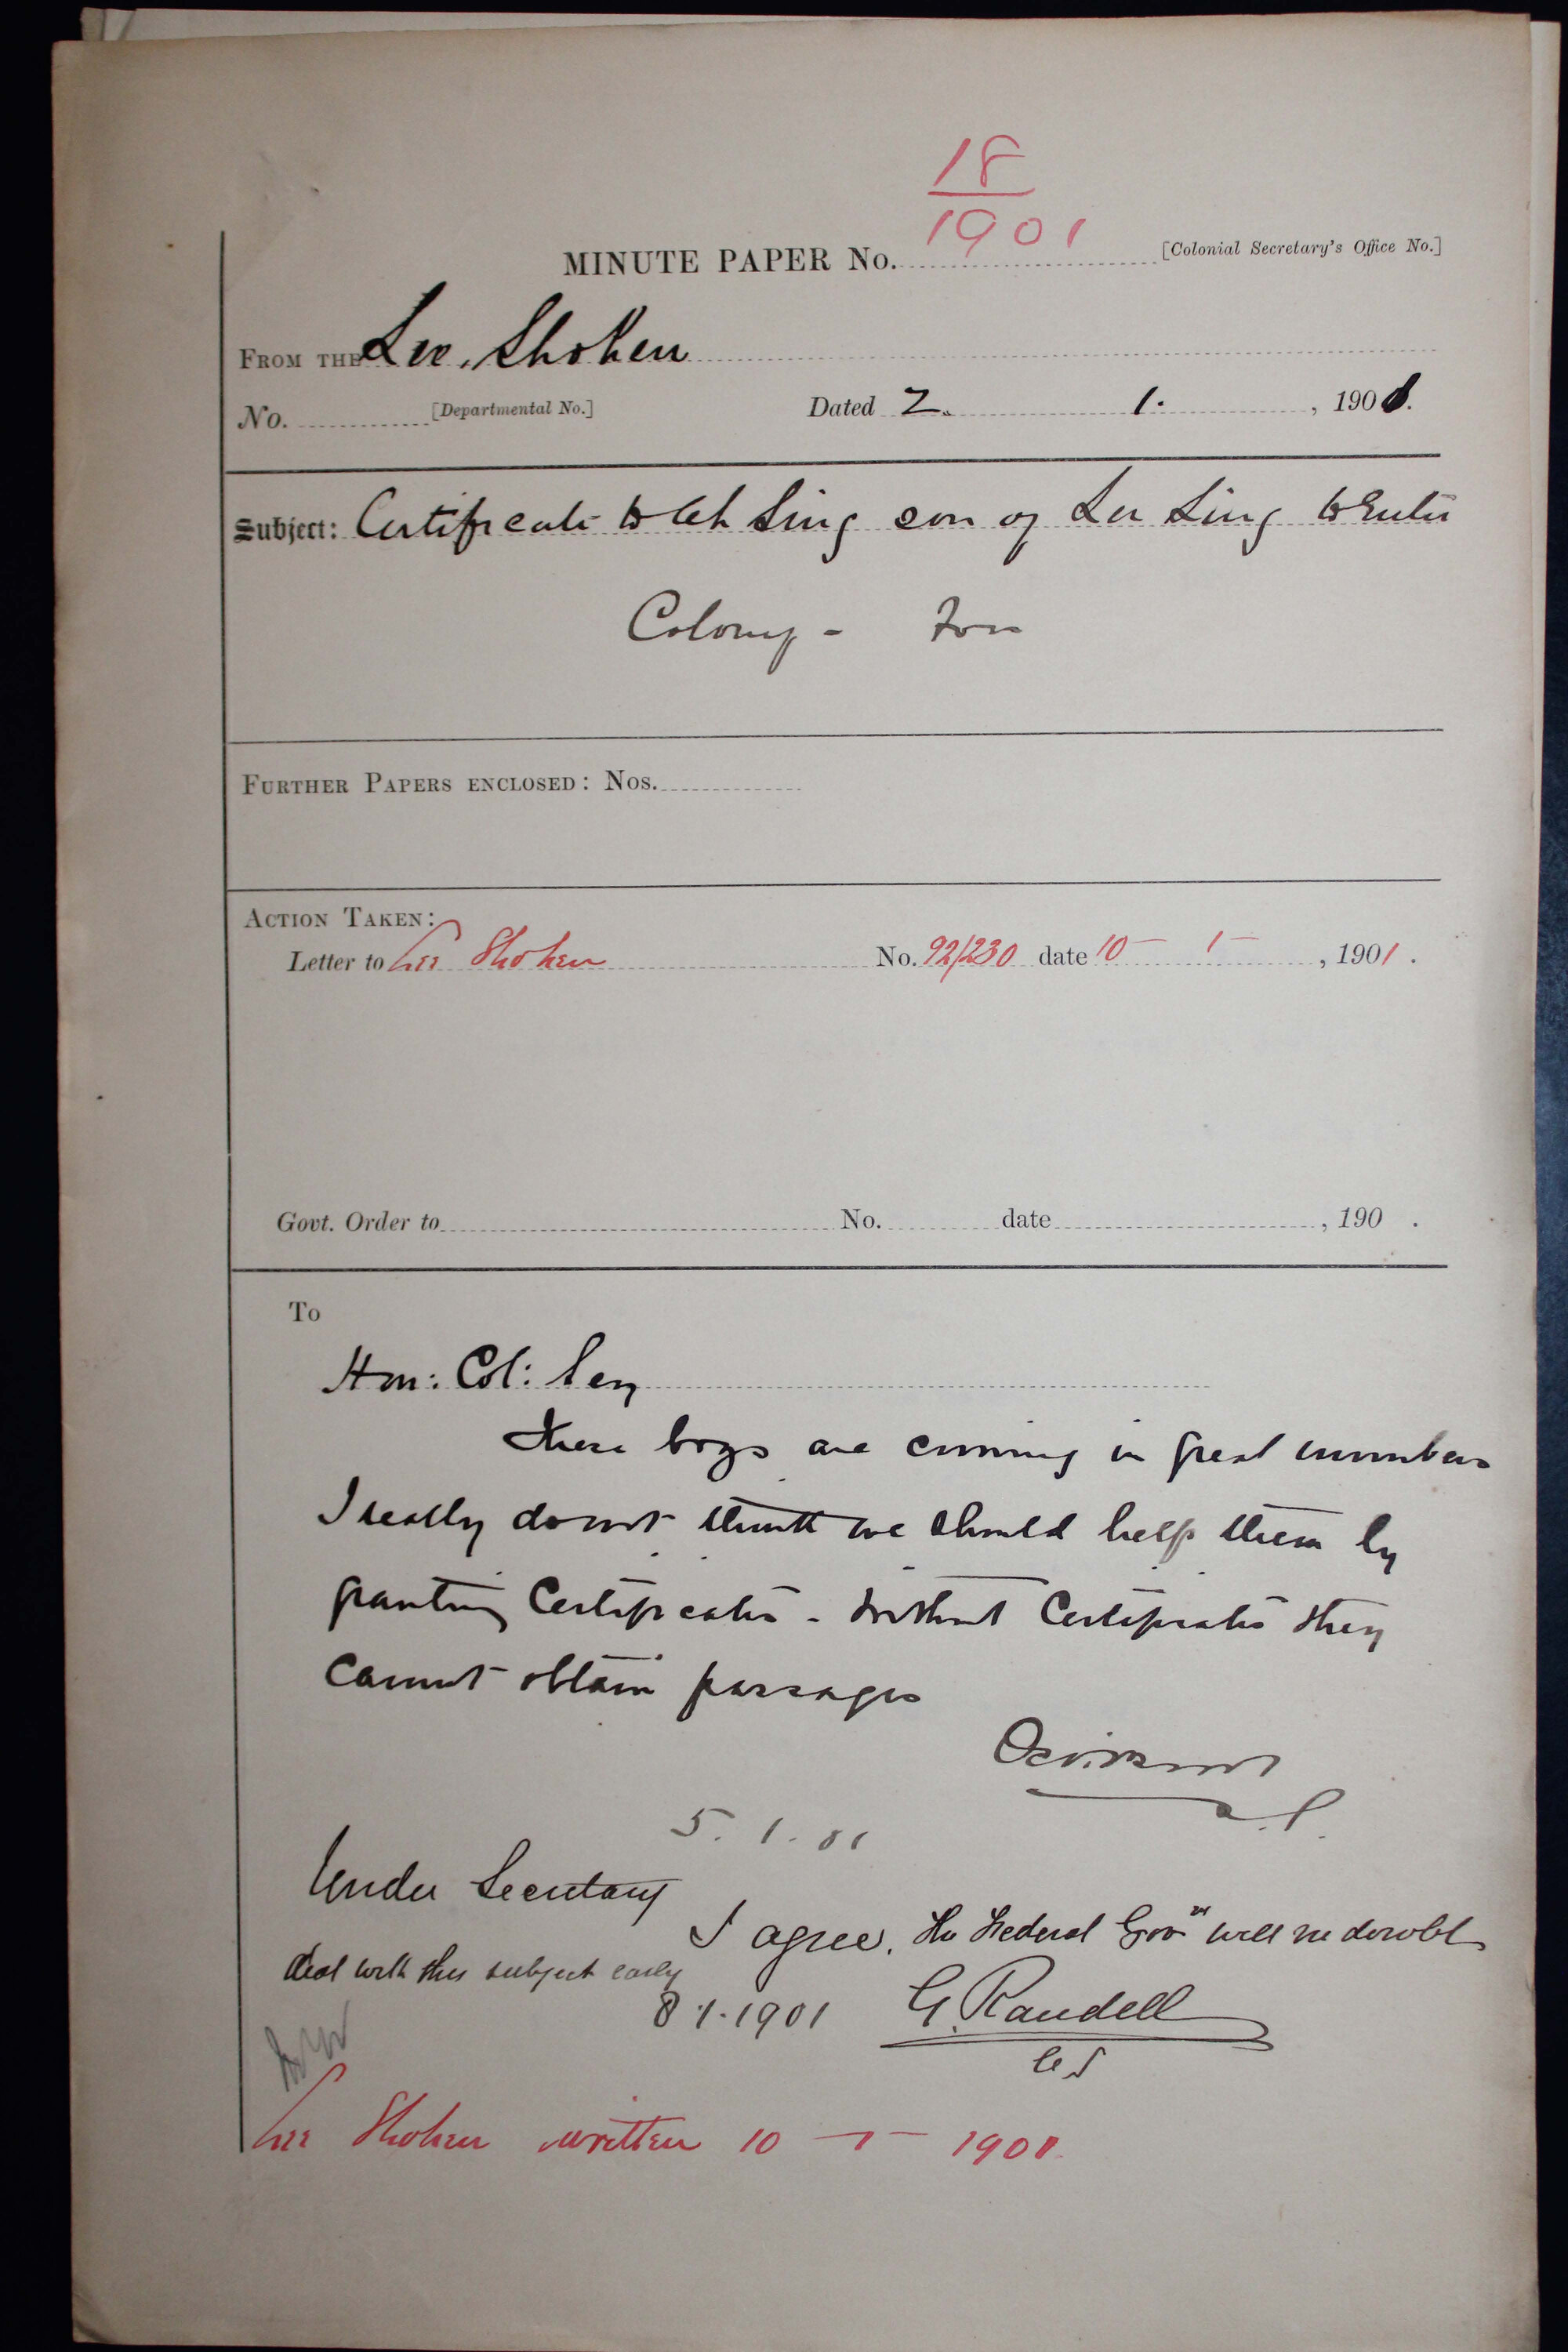 18
1901
MINUTE PAPER No. [Colonial Secretary's Office No.]
FROM THE Lee Shoken
No. [Departmental No.] Dated 2. 1. , 1901.
Subject: Certificate to Ah Sing son of Lee Sing to Enter
Colony - for
FURTHER PAPERS ENCLOSED: Nos.
ACTION TAKEN:
Letter to Lee Shoken No. 92/230 date 10 - 1 - , 1901.
Govt. Order to No. date , 190 .
To
Hon: Col: Secy
These boys are coming in great numbers
I really do not think we should help them by
granting Certificates - Without Certificates they
cannot obtain passages
5.1.01
Under Secretary
I agree. The Federal Govt will no doubt
deal with this subject early
8.1.1901 G. Randell
CS
Lee Shoken written 10 - 1 - 1901